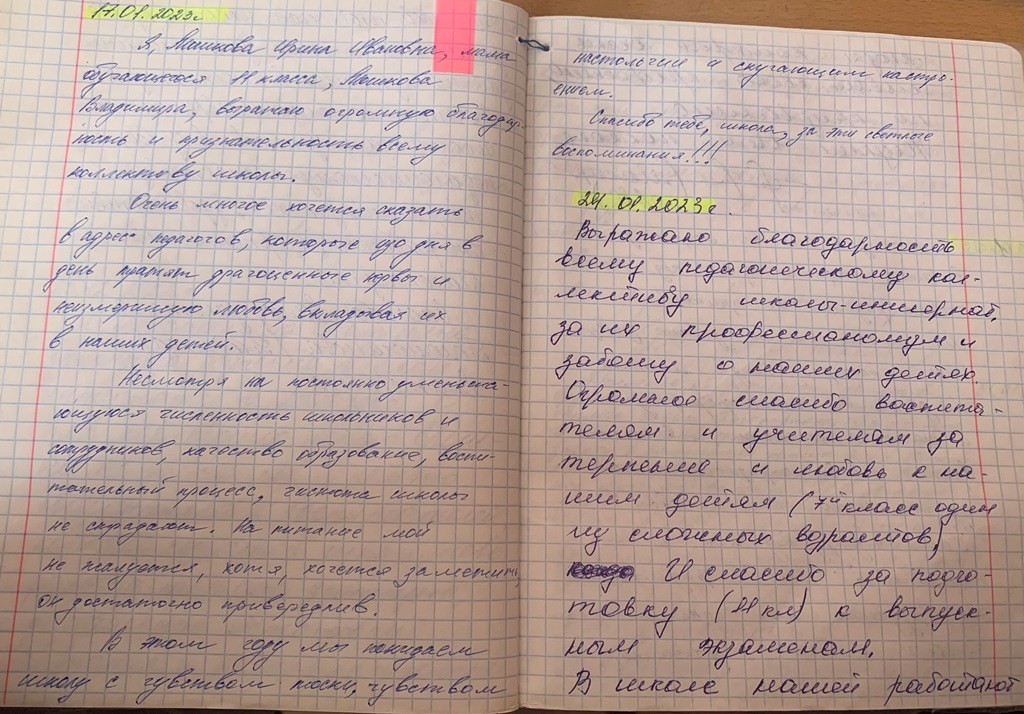 17.01.2023г
Я, Машкова Ирина Ивановна, мама
обучающегося 11 класса, Машкова
Владимира, выражаю огромную благодар-
ность и признательность всему
коллективу школы.
Очень многое хочется сказать
в адрес педагогов, которые изо дня в
день тратят драгоценные нервы и
неизмеримую любовь, вкладывая их
в наших детей.
Несмотря на постоянно уменьша-
ющуюся численность школьников и
сотрудников, качество образование, воспи-
тательный процесс, чистота школы
не страдают. На питание мой
не жалуется, хотя, хочется заметить,
он достаточно привередлив.
В этом году мы покидаем
школу с чувством тоски, чувством
ностальгии и скучающим настро-
ением.
Спасибо тебе, школа, за эти светлые
воспоминания!!!
24.01.2023г.
Выражаю благодарность
всему педагогическому кол-
лективу школы-интернат,
за их профессионализм и
заботу о наших детях.
Огромное спасибо воспита-
телям и учителям за
терпение и любовь к на-
шим детям (7й класс один
из сложных возрастов)
И спасибо за подго-
товку (11 кл) к выпуск-
ным экзаменам.
В школе нашей работают